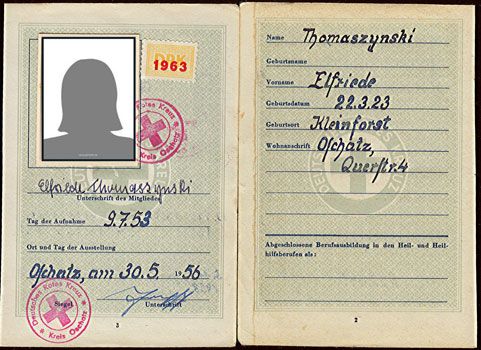 DRK
1963
Deutsches Rotes Kreuz
Kreis Oschatz
Elfriede Thomaszynski
Unterschrift des Mitgliedes
Tag der Aufnahme 9.7.53
Ort und Tag der Ausstellung
Oschatz, am 30.5 1956
Deutsches Rotes Kreuz
Kreis Oschatz
Siegel Unterschrift
3
Name Thomaszynski
Geburtsname
Vorname Elfriede
Geburtsdatum 22.3.23
Geburtsort Kleinforst
Wohnanschrift Oschatz,
Querstr. 4
Abgeschlossene Berufsausbildung in den Heil- und Heil-
hilfsberufen als:
2